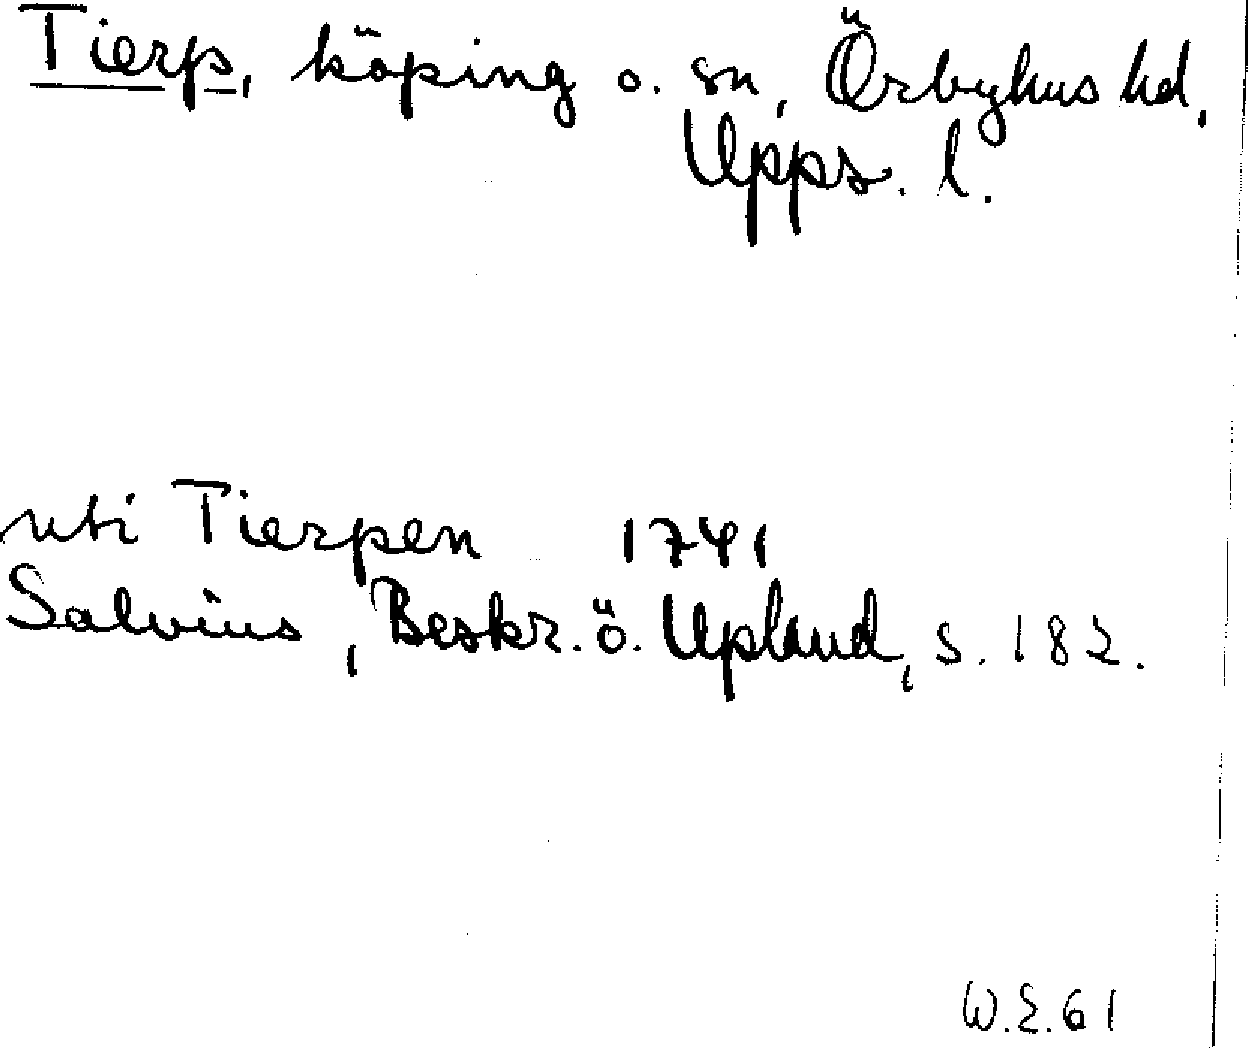 Tierp, köping o. sn, Örbyhus hd,
Upps. l.
uti Tierpen 1741
Salvius, Beskr. ö. Upland, s. 182.
W.E.61